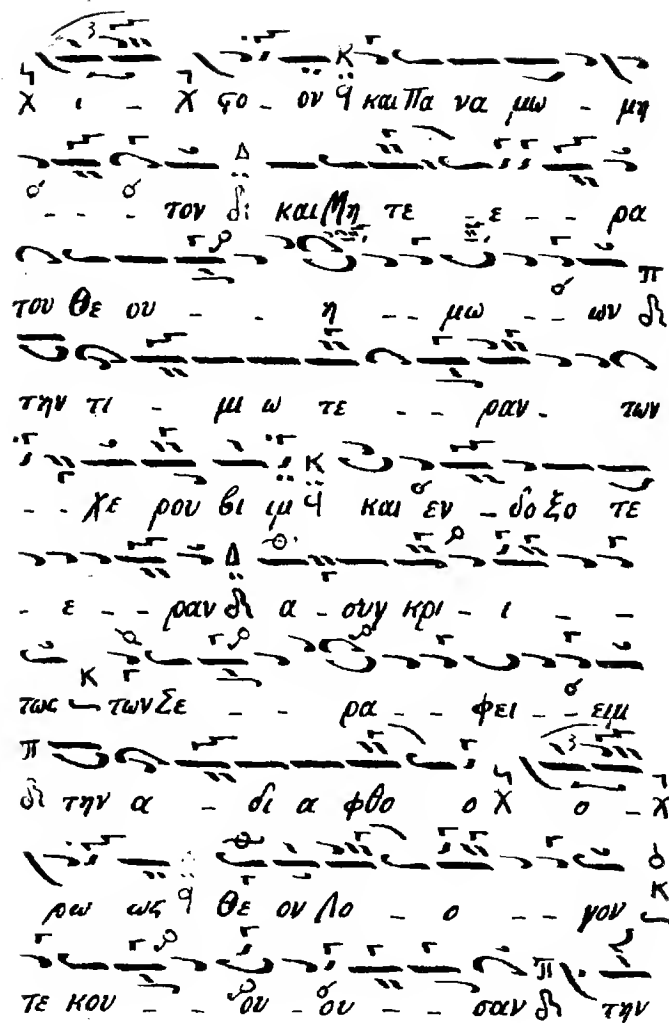 χ ι - χ στο - ον ϥ και Πα να μω - μη
- - - τον δι και Μη τε - ε - - ρα
του Θε ου - - η - - μω - - ων
την τι - μι ω τε - - ραν - των
- - χε ρου βι ιμ ϥ και εν - δο ξο τε
- ε - - ραν α - συγ κρι - ι - -
τως των Σε - - ρα - - φει - - ειμ
την α - δι α φθο ο χ ο - χ
ρω ως ϥ Θε ον Λο - ο - - γον
τε κου - - ου - ου - - σαν την